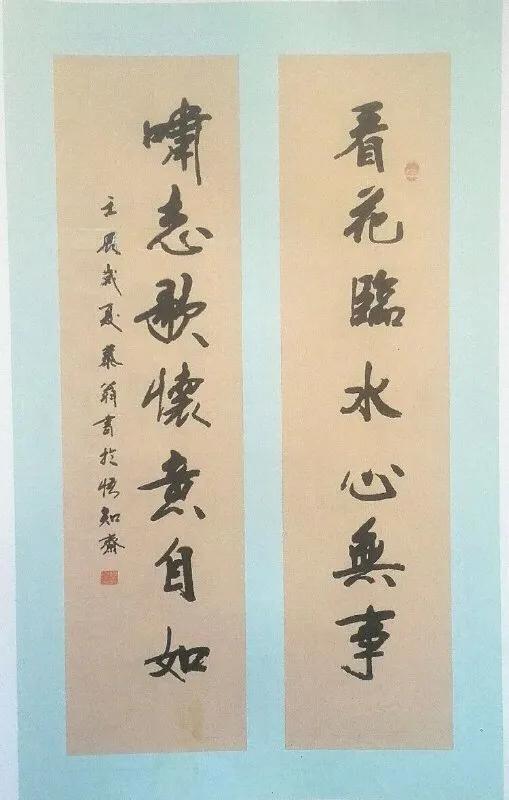 看花臨水心無事
嘯志歌懷意自如
壬辰歲夏 翁書於悟知齋